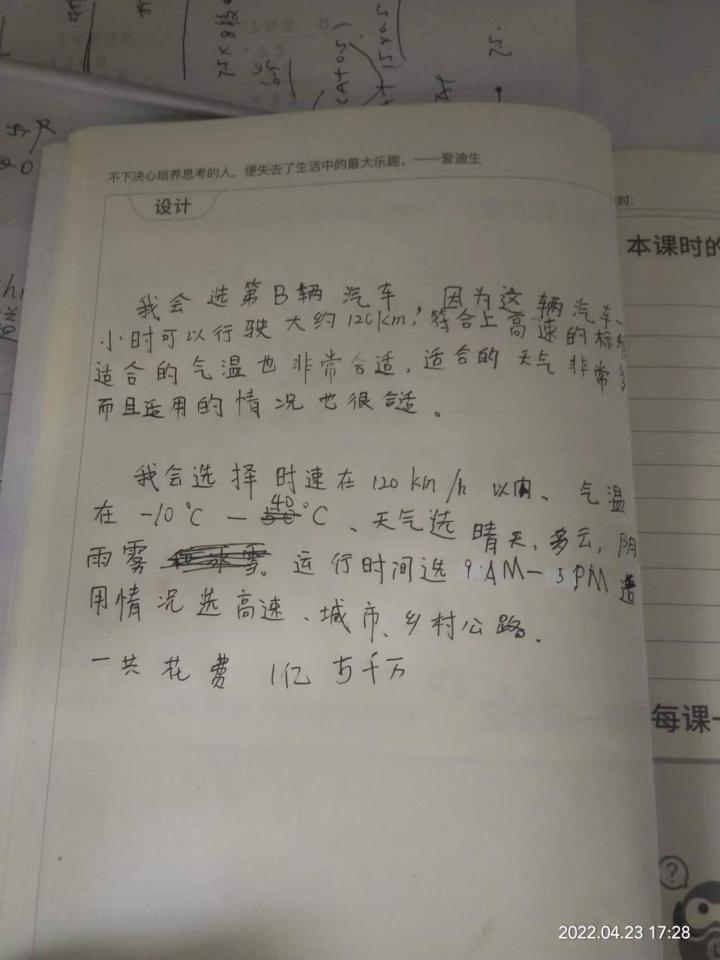 75×8段
(A+0.5)
15×0.5
75.
不下决心培养思考的人，便失去了生活中的最大乐趣。——爱迪生
设计
时:
本课时的
我会选第B辆汽车，因为这辆汽车一
小时可以行驶大约120km，符合上高速的标
适合的气温也非常合适，适合的天气非常
而且适用的情况也很合适。
我会选择时速在120km/h以内、气温
在-10℃—40℃、天气选晴天，多云，阴
雨雾。运行时间选9AM—5PM适
用情况选高速、城市、乡村公路.
一共花费1亿5千万
每课一
?
2022.04.23 17:28